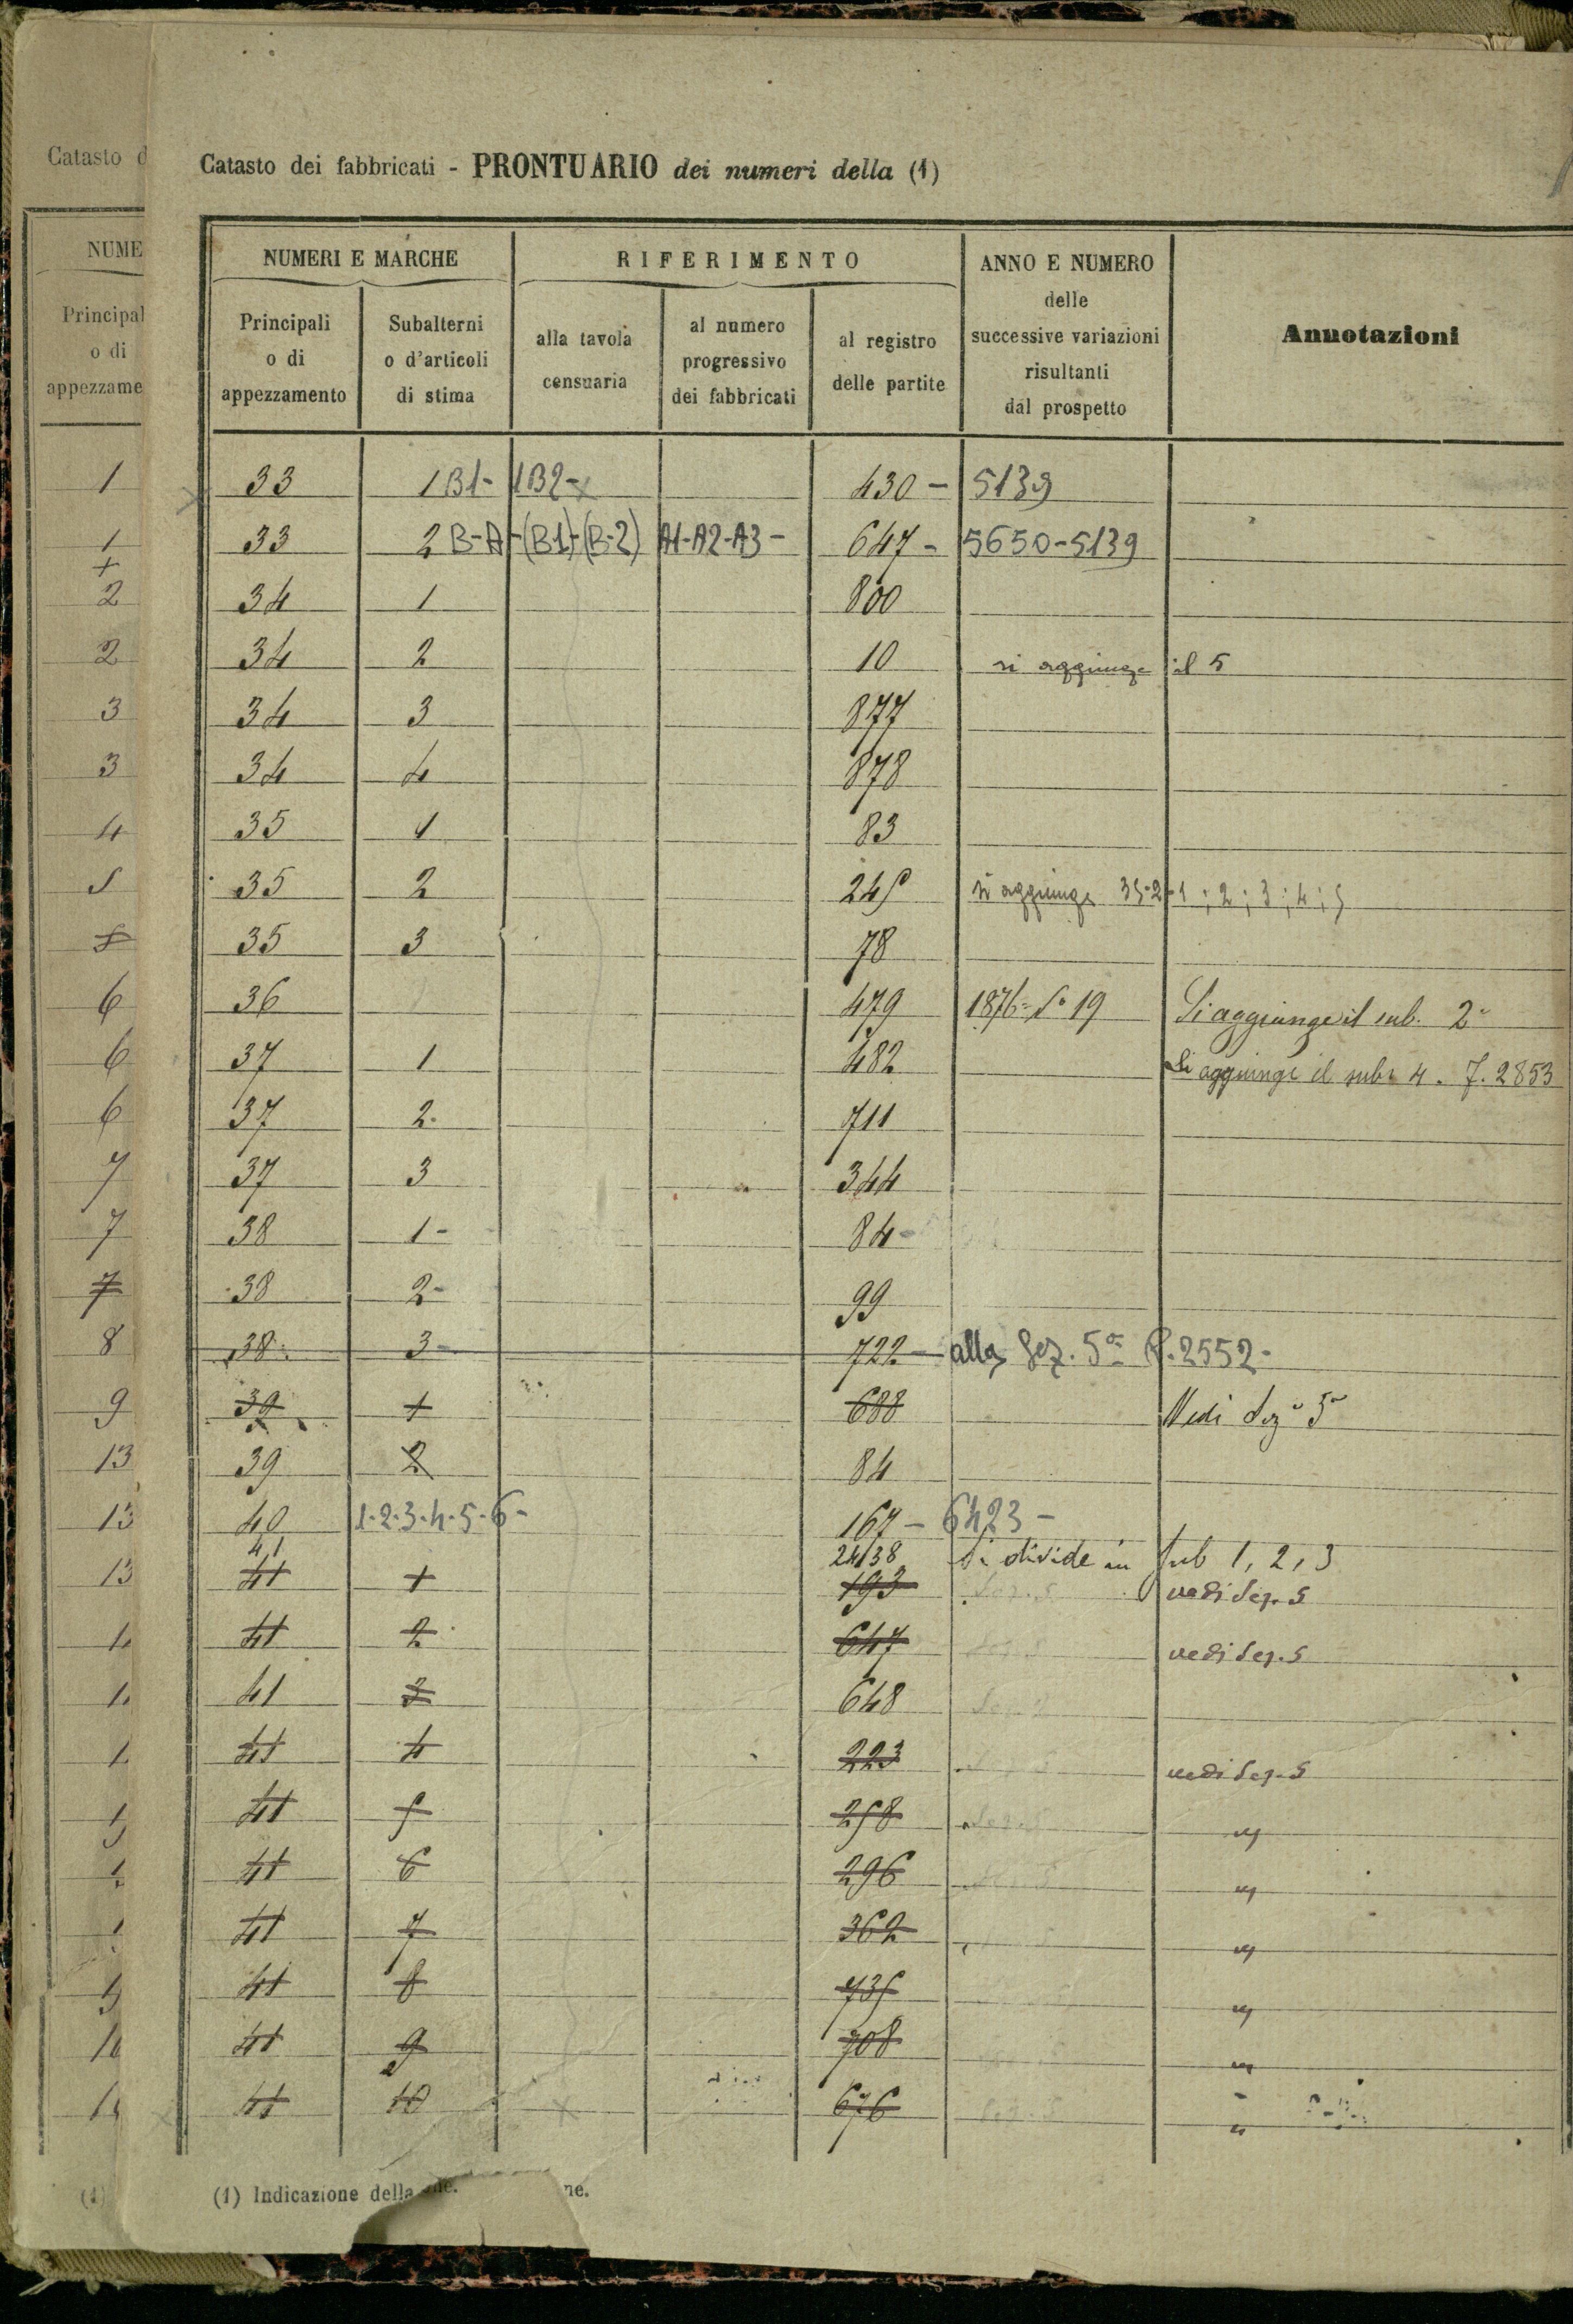 Catasto dei fabbricati - PRONTUARIO dei numeri della (1)
NUMERI E MARCHE RIFERIMENTO ANNO E NUMERO delle successive variazioni risultanti dal prospetto Annotazioni
Principali o di appezzamento Subalterni o d'articoli di stima alla tavola censuaria al numero progressivo dei fabbricati al registro delle partite
33 1 B1- 1B2- 430 - 5139
33 2 B-A-(B1)-(B-2) A1-A2-A3- 647 - 5650-5139
34 1 800
34 2 10 si aggiunge il 5
34 3 877
34 4 878
35 1 83
35 2 245 si aggiunge 35-2-1; 2; 3; 4; 5
35 3 78
36 479 1876 = 19 Si aggiunge il sub. 2
37 1 482 Si aggiunge il sub. 4. 7. 2853
37 2 711
37 3 344
38 1- 84-
38 2- 99
38 3- 722 - alla Sez. 5a P. 2552-
39 1 688 Vedi Sez 5
39 2 84
40 1-2-3-4-5-6- 167 - 6423 -
41 24138 Si divide in sub 1, 2, 3
41 1 193 vedi Sez. 5
41 2 647 vedi Sez. 5
41 3 648
41 4 223 vedi Sez. 5
41 5 258 "
41 6 296 "
41 7 362 "
41 8 735 "
41 9 708 "
41 10 676 "
(1) Indicazione della
Catasto d
NUME
Principal
o di
appezzame
1
1
2
2
3
3
4
5
5
6
6
6
7
7
7
8
9
13
13
13
(1)